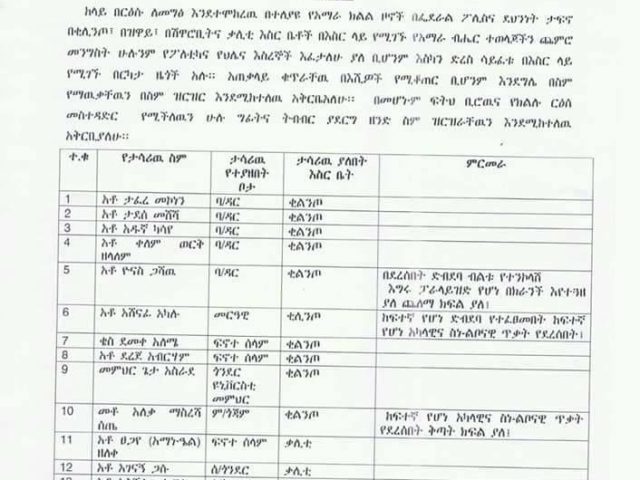 ከላይ በርዕሱ ለመግፅ እንደተሞከረዉ በተለያዩ የአማራ ክልል ዞኖች በፌደራል ፖሊስና ደህንነት ታፍኖ
በቂሊንጦ፣ በዝዋይ፣ በሸዋሮቢትና ቃሊቲ እስር ቤቶች በእስር ላይ የሚገኙ የአማራ ብሔር ተወላጆችን ጨምሮ
መንግስት ሁሉንም የፖለቲካና የህሊና እስረኞች እፈታለሁ ያለ ቢሆንም እስካን ድረስ ሳይፈቱ በእስር ላይ
የሚገኙ በርካታ ዜጎች አሉ። አጠቃላይ ቁጥራቸዉ በእሺዎች የሚቆጠር ቢሆንም እንደግሌ በስም
የማዉቃቸዉን በስም ዝርዝር እንደሚከተለዉ አቅርቤአለሁ። በመሆኑም ፍትህ ቢሮዉና የክልሉ ርዕሰ
መስተዳድር የሚችለዉን ሁሉ ግፊትና ትብብር ያደርግ ዘንድ ስም ዝርዝራቸዉን እንደሚከተለዉ
አቅርቢያለሁ።
ተ.ቁ የታሳሪዉ ስም ታሳሪዉ የተያዘበት ቦታ ታሳሪዉ ያለበት እስር ቤት ምርመራ
1 አቶ ታፈረ መኮነን ባ/ዳር ቂልንጦ
2 አቶ ታደሰ መሸሻ ባ/ዳር ቂልንጦ
3 አቶ እዱኛ ካሳየ ባ/ዳር ቂልንጦ
4 አቶ ቀለም ወርቅ ዘላለም ባ/ዳር ቂልንጦ
5 አቶ ዮናስ ጋሻዉ ባ/ዳር ቂልንጦ በደረሰበት ድብደባ ብልቱ የተንኮላሸ
እግሩ ፓራላይዝድ የሆነ በክራንች እየተጓዘ
ያለ ጨለማ ክፍል ያለ፤
6 አቶ አሸናፊ አካሉ መርዓዊ ቂሊንጦ ከፍተኛ የሆነ ድብደባ የተፈፀመበት ከፍተኛ
የሆነ አካላዊና ስነ-ልቦናዊ ጥቃት የደረሰበት፤
7 ቄስ ደመቀ አለሜ ፍኖተ ሰላም ቂልንጦ
8 አቶ ደረጀ አብርሃም ፍኖተ ሰላም ቂልንጦ
9 መምህር ጌታ አስራደ ጎንደር ዩኒቨርስቲ መምህር ቂልንጦ
10 መቶ አለቃ ማስረሻ ሰጤ ም/ጎጃም ቂልንጦ ከፍተኛ የሆነ አካላዊና ስነ-ልቦናዊ ጥቃት
የደረሰበት ቅጣት ክፍል ያለ፤
11 አቶ ፀጋየ (አማኑኤል) ዘለቀ ፍኖተ ሰላም ቃሊቲ
12 አቶ አገናኝ ጋሱ ሰ/ጎንደር ቃሊቲ